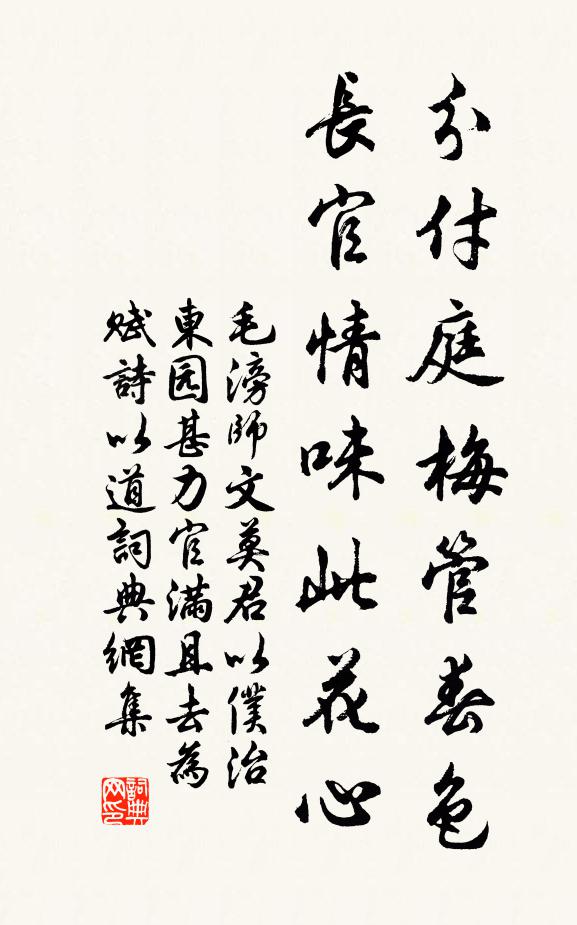 分付庭梅管春色
長官情味此花心
毛滂師文莫君以僕治
東园甚力官滿且去為
賦詩以道詞典網集
詞典
网印